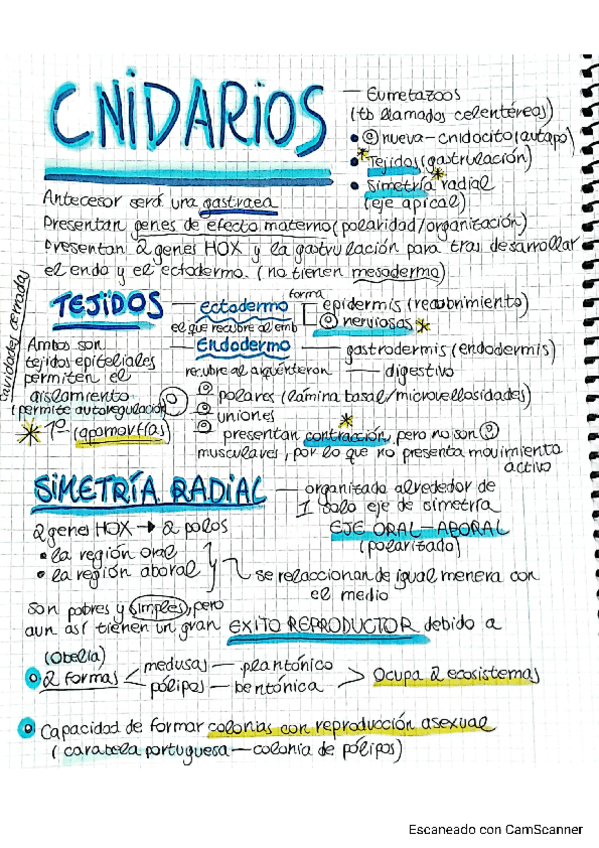 CNIDARIOS
— Eumetazoos
(tb llamados celentéreos)
• nueva - cnidocito (autapo)
• Tejidos (gastrulación)
• Simetría radial
(eje apical)
Antecesor será una gastraea
Presentan genes de efecto materno (polaridad/organización)
Presentan 2 genes HOX y la gastrulación para tras desarrollar
el endo y el ectodermo. (no tienen mesodermo)
TEJIDOS — ectodermo forma epidermis (recubrimiento)
el que recubre al emb nerviosas
Ambos son — Endodermo — gastrodermis (endodermis)
tejidos epiteliales recubre al arquénteron — digestivo
permiten el
aislamiento polares (lámina basal/microvellosidades)
(permite autoregulación) uniones
cavidades cerradas
1º (apomorfías) presentan contracción, pero no son
musculares, por lo que no presenta movimiento
activo
SIMETRÍA RADIAL — organizado alrededor de
1 solo eje de simetría
2 genes HOX → 2 polos EJE ORAL-ABORAL
(polarizado)
• la región oral
• la región aboral
se relaccionan de igual menera con
el medio
son pobres y simples, pero
aun así tienen un gran EXITO REPRODUCTOR debido a
(Obelia)
2 formas < medusas — plantónico > Ocupa 2 ecosistemas
pólipos — bentónica
Capacidad de formar colonias con reproducción asexual
(carabela portuguesa — colonia de pólipos)
Escaneado con CamScanner